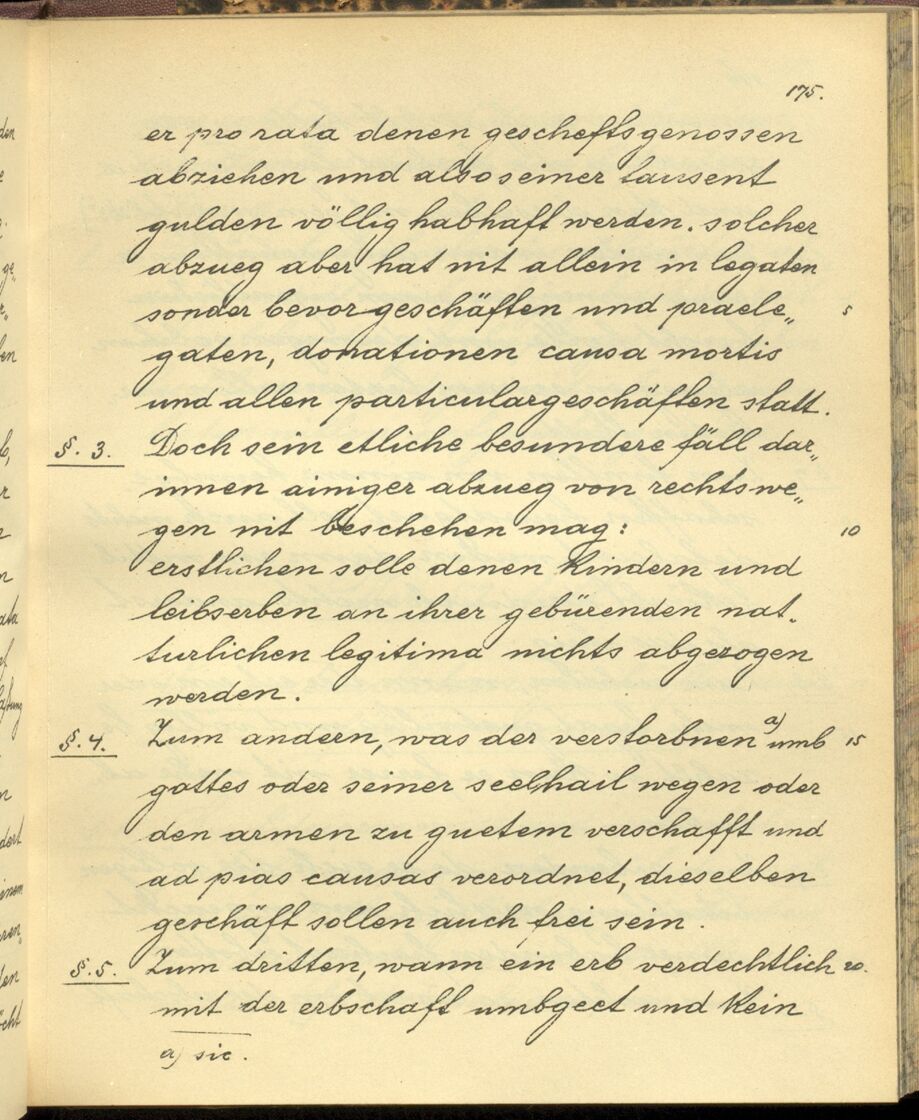 175.
er pro rata denen gescheftsgenossen
abziehen und also seiner tausent
gulden völlig habhaft werden. solcher
abzueg aber hat nit allein in legaten
sonder bevor geschäften und praele„ 5
gaten, donationen causa mortis
und allen particulargeschäften statt.
§. 3. Doch sein etliche besundere fäll dar„
innen ainiger abzueg von rechtswe„
gen nit beschehen mag: 10
erstlichen solle denen kindern und
leibserben an ihrer gebürenden nat„
turlichen legitima nichts abgezogen
werden.
§. 4. Zum andern, was der verstorbnen a) umb 15
gottes oder seiner seelhail wegen oder
den armen zu guetem verschafft und
ad pias causas verordnet, dieselben
geschäft sollen auch frei sein.
§. 5. Zum dritten, wann ein erb verdechtlich 20.
mit der erbschaft umbgeet und kein
a) sic.
den
ge„
ben